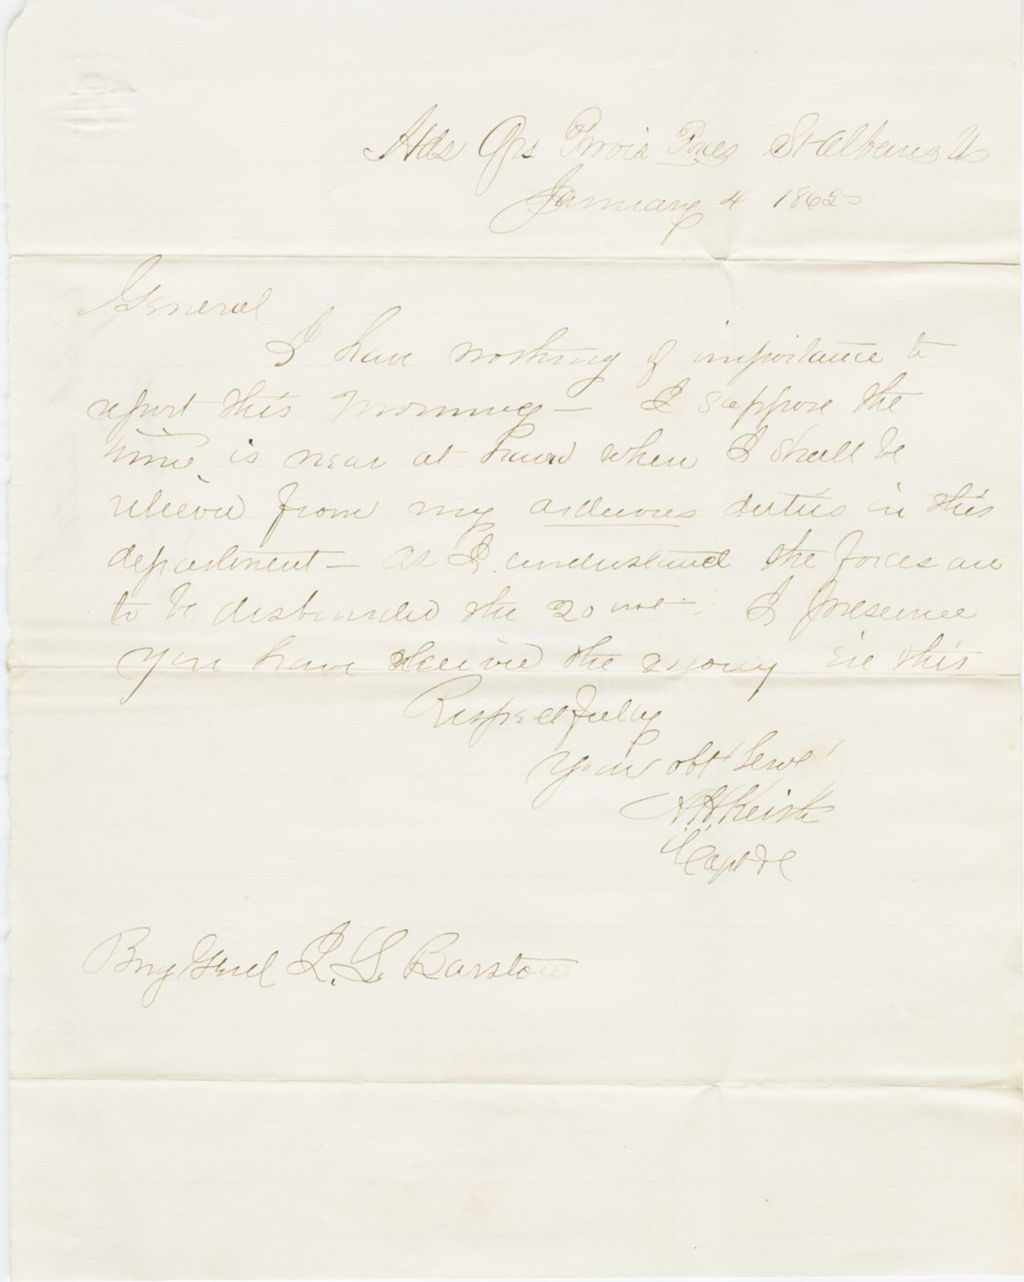 Hds Qrs Provis Forces St Albans Vt
January 4 1865
General
I have nothing of importance to
report this morning – I suppose the
time is near at hand when I shall be
relieved from my arduous duties in this
department – as I understand the forces are
to be disbanded the 20 inst. I presume
you have received the money ere this
Respectfully
Your obt Servt
Capt &c
Brig Genl J. L. Barstow